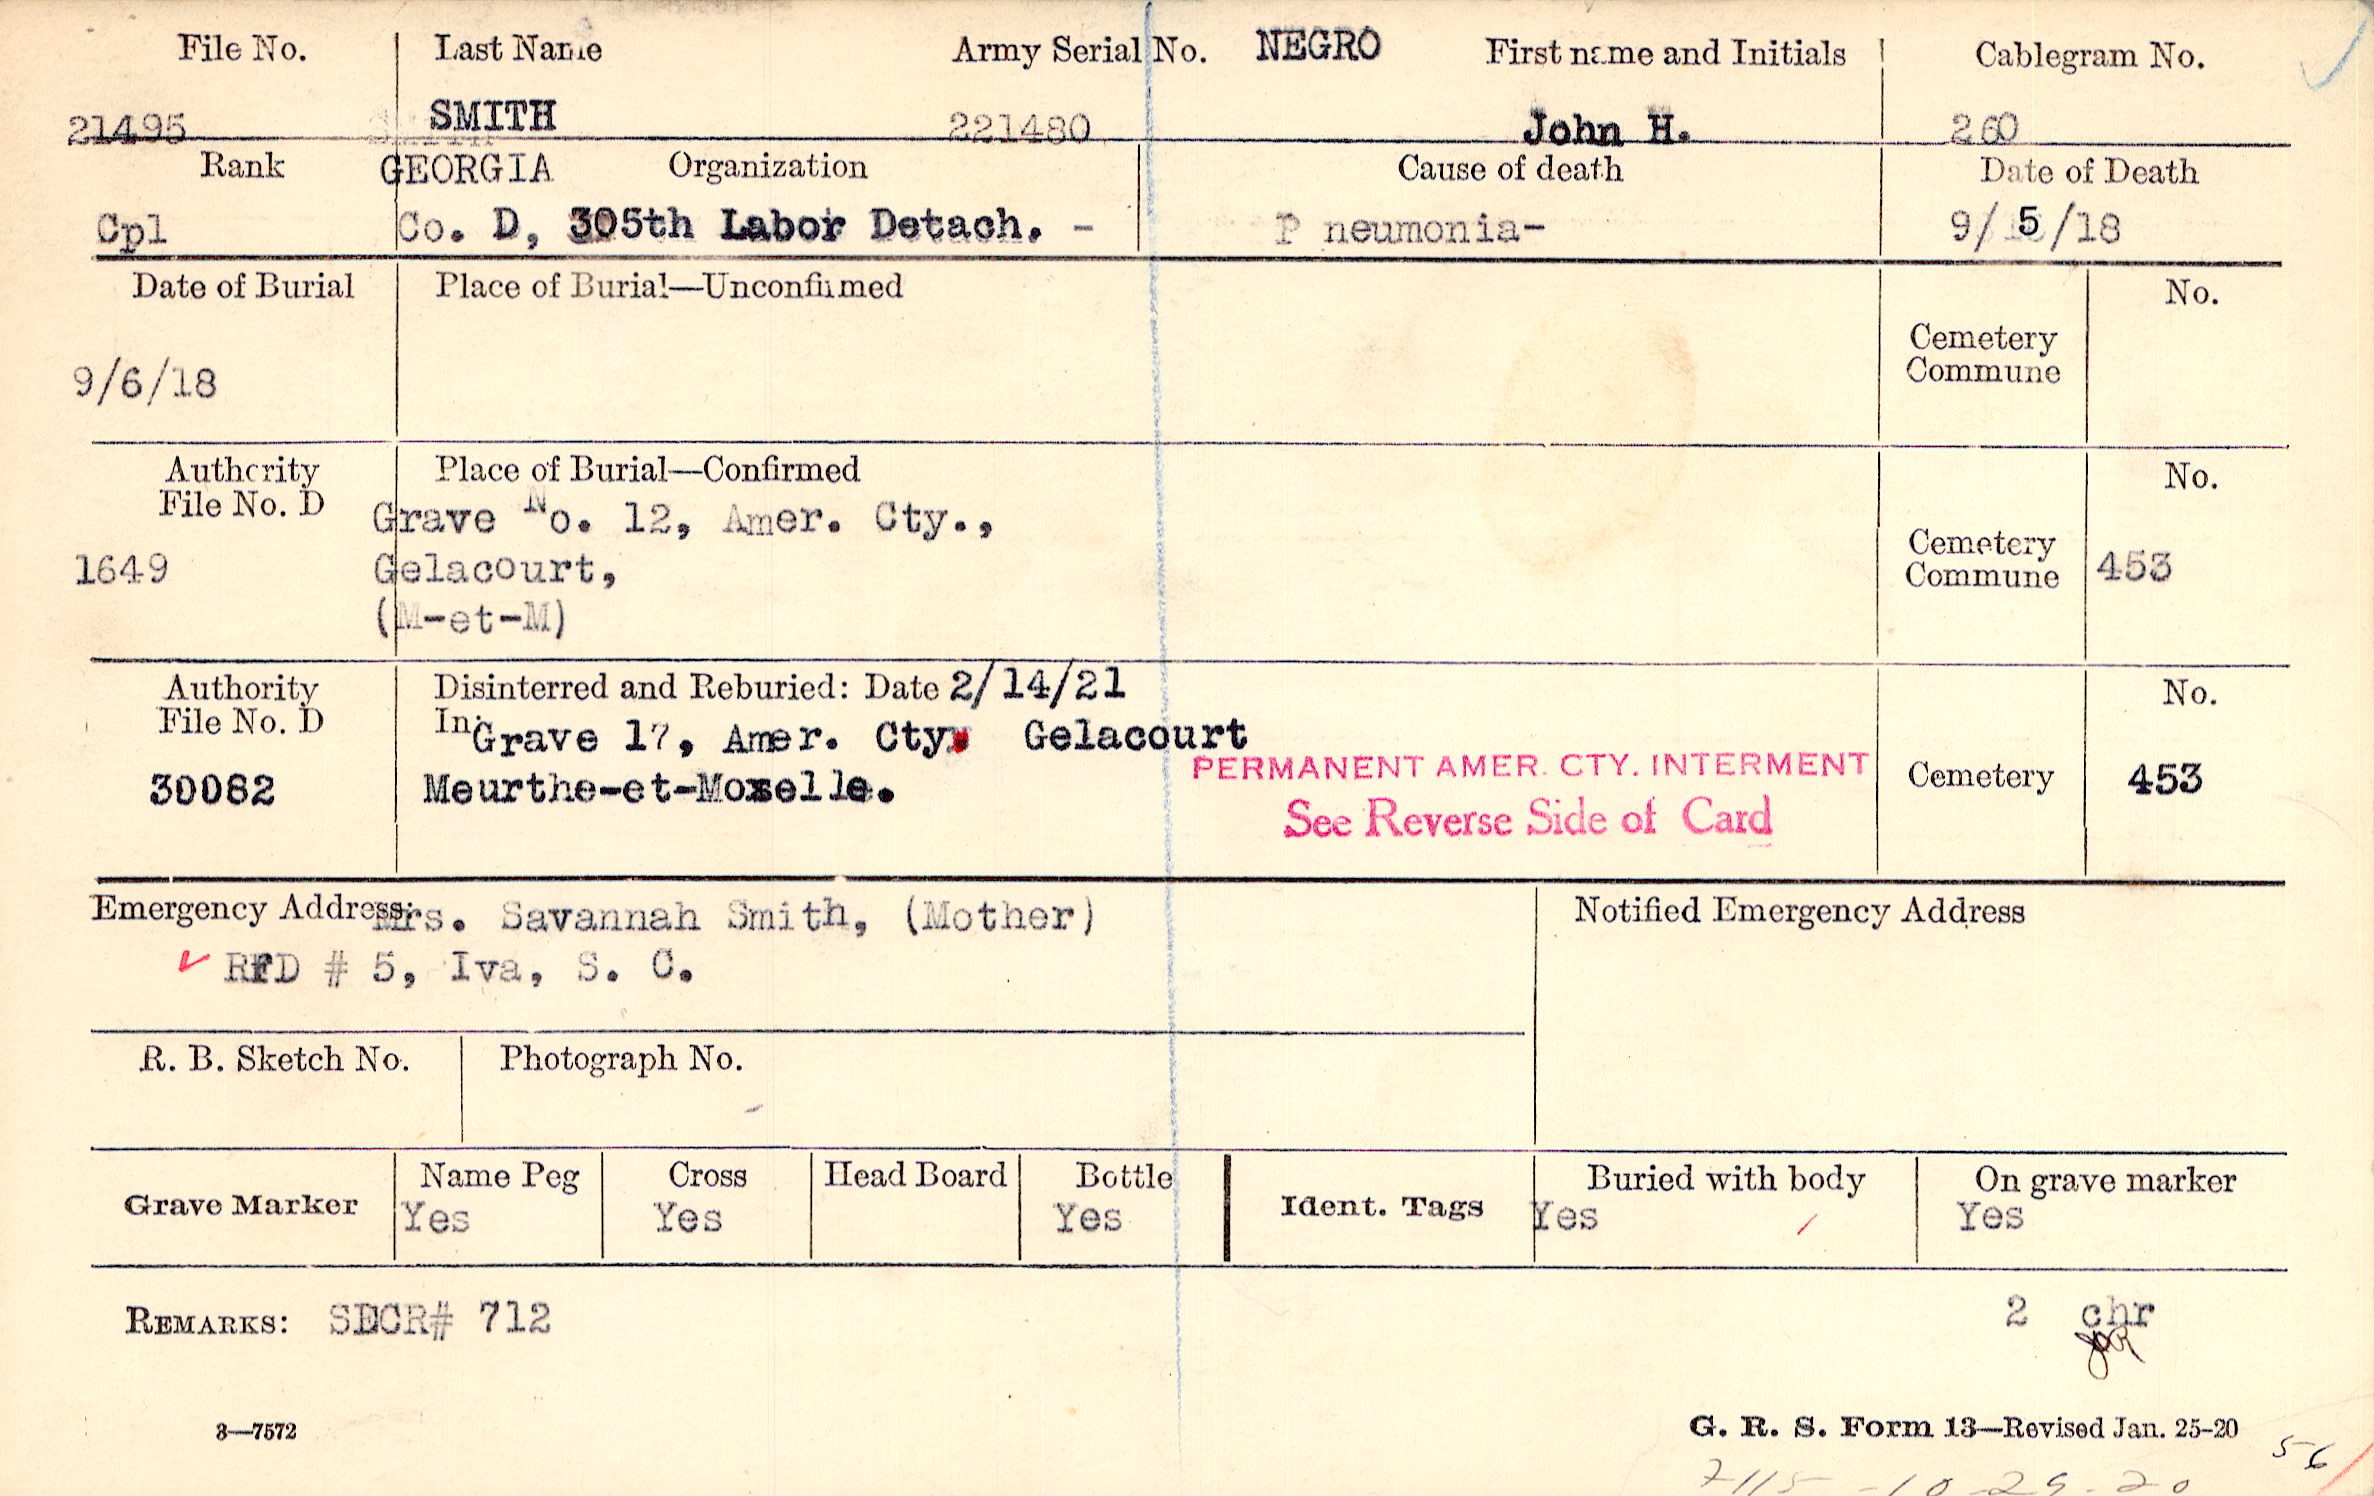 File No. Last Name Army Serial No. NEGRO First name and Initials Cablegram No.
21495 SMITH 221480 John H. 260
Rank GEORGIA Organization Cause of death Date of Death
Cpl Co. D, 305th Labor Detach. - P neumonia- 9/ 5/18
Date of Burial Place of Burial—Unconfirmed No.
Cemetery
Commune
9/6/18
Authority Place of Burial—Confirmed No.
File No. D
Grave No. 12, Amer. Cty.,
1649 Gelacourt, Cemetery
Commune 453
(M-et-M)
Authority Disinterred and Reburied: Date 2/14/21 No.
File No. D In: Grave 17, Amer. Cty. Gelacourt
PERMANENT AMER. CTY. INTERMENT
30082 Meurthe-et-Moselle. Cemetery 453
See Reverse Side of Card
Emergency Address: Mrs. Savannah Smith, (Mother) Notified Emergency Address
RFD # 5, Iva, S. C.
R. B. Sketch No. Photograph No.
Grave Marker Name Peg Cross Head Board Bottle Ident. Tags Buried with body On grave marker
Yes Yes Yes Yes Yes
REMARKS: SECR# 712 2 chr
3—7572 G. R. S. Form 13—Revised Jan. 25-20
56
7115 - 10-29-20